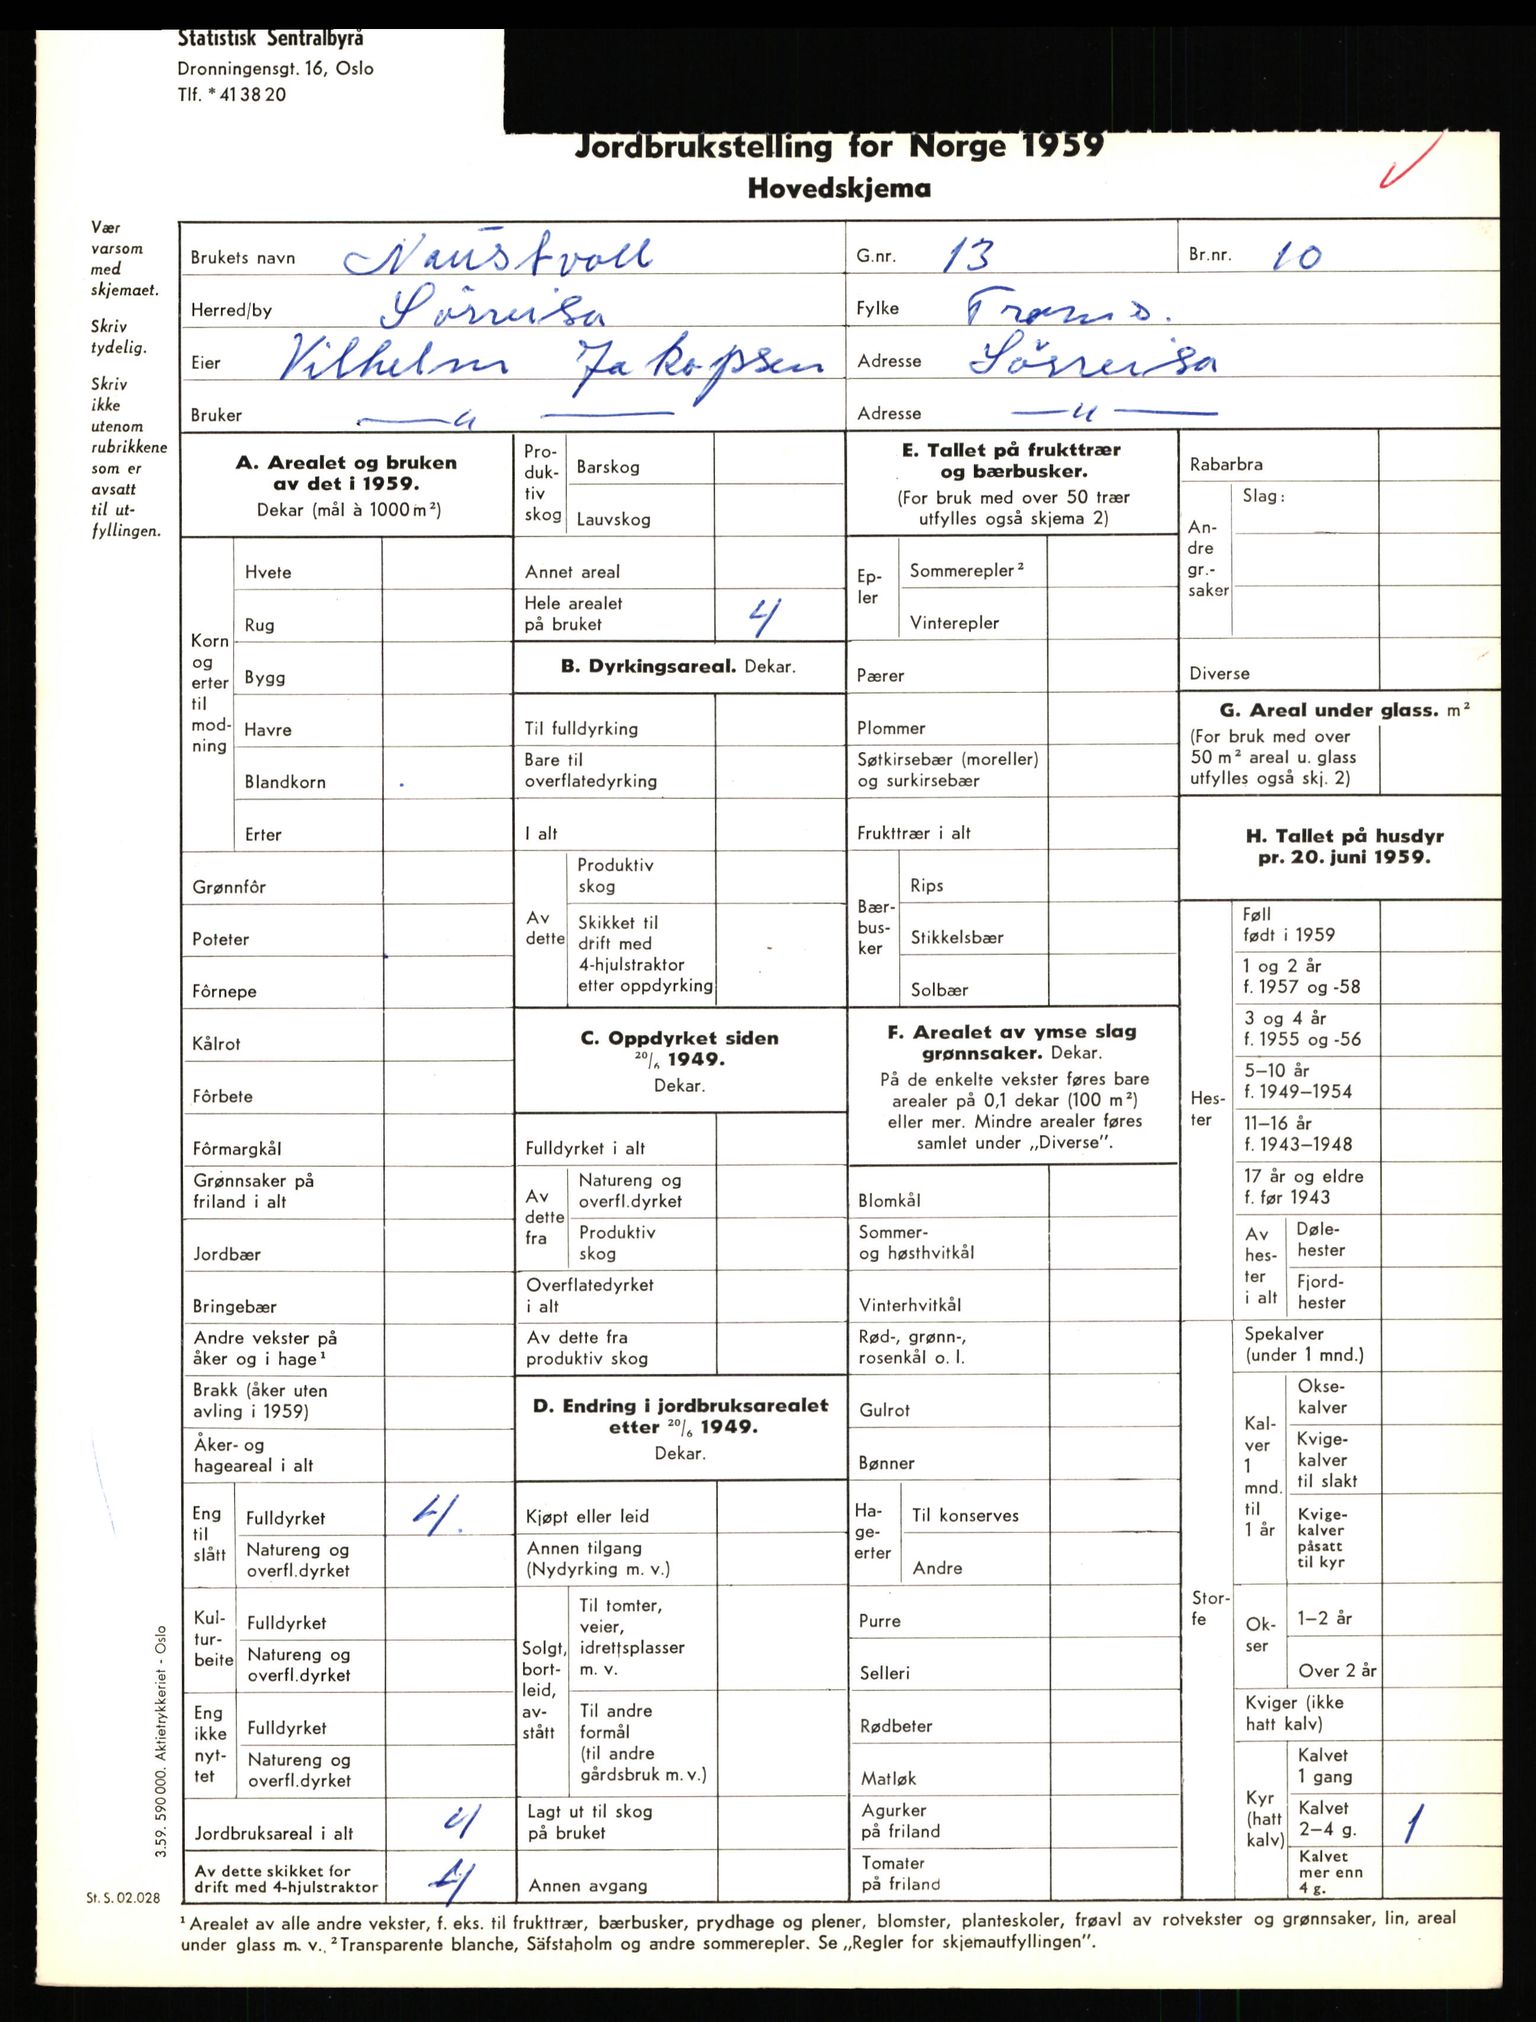 Statistisk Sentralbyrå
Dronningensgt. 16, Oslo
Tlf. * 41 38 20
Jordbrukstelling for Norge 1959
Hovedskjema
Vær
varsom
med
skjemaet.
Skriv
tydelig.
Skriv
ikke
utenom
rubrikkene
som er
avsatt
til ut-
fyllingen.
Brukets navn Naustvoll G.nr. 13 Br.nr. 10
Herred/by Sörreisa Fylke Troms.
Eier Vilhelm Jakopsen Adresse Sörreisa
Bruker —〃— Adresse —〃—
A. Arealet og bruken
av det i 1959.
Dekar (mål à 1000 m²)
Korn
og
erter
til
mod-
ning
Hvete
Rug
Bygg
Havre
Blandkorn
Erter
Grønnfôr
Poteter
Fôrnepe
Kålrot
Fôrbete
Fôrmargkål
Grønnsaker på
friland i alt
Jordbær
Bringebær
Andre vekster på
åker og i hage¹
Brakk (åker uten
avling i 1959)
Åker- og
hageareal i alt
Eng
til
slått
Fulldyrket 4.
Natureng og
overfl.dyrket
Kul-
tur-
beite
Fulldyrket
Natureng og
overfl.dyrket
Eng
ikke
nyt-
tet
Fulldyrket
Natureng og
overfl.dyrket
Jordbruksareal i alt 4
Av dette skikket for
drift med 4-hjulstraktor 4
Pro-
duk-
tiv
skog
Barskog
Lauvskog
Annet areal
Hele arealet
på bruket 4
B. Dyrkingsareal. Dekar.
Til fulldyrking
Bare til
overflatedyrking
I alt
Av
dette
Produktiv
skog
Skikket til
drift med
4-hjulstraktor
etter oppdyrking
C. Oppdyrket siden
20/6 1949.
Dekar.
Fulldyrket i alt
Av
dette
fra
Natureng og
overfl.dyrket
Produktiv
skog
Overflatedyrket
i alt
Av dette fra
produktiv skog
D. Endring i jordbruksarealet
etter 20/6 1949.
Dekar.
Kjøpt eller leid
Annen tilgang
(Nydyrking m. v.)
Solgt,
bort-
leid,
av-
stått
Til tomter,
veier,
idrettsplasser
m. v.
Til andre
formål
(til andre
gårdsbruk m. v.)
Lagt ut til skog
på bruket
Annen avgang
E. Tallet på frukttrær
og bærbusker.
(For bruk med over 50 trær
utfylles også skjema 2)
Ep-
ler
Sommerepler²
Vinterepler
Pærer
Plommer
Søtkirsebær (moreller)
og surkirsebær
Frukttrær i alt
Bær-
bus-
ker
Rips
Stikkelsbær
Solbær
F. Arealet av ymse slag
grønnsaker. Dekar.
På de enkelte vekster føres bare
arealer på 0,1 dekar (100 m²)
eller mer. Mindre arealer føres
samlet under „Diverse”.
Blomkål
Sommer-
og høsthvitkål
Vinterhvitkål
Rød-, grønn-,
rosenkål o. l.
Gulrot
Bønner
Ha-
ge-
erter
Til konserves
Andre
Purre
Selleri
Rødbeter
Matløk
Agurker
på friland
Tomater
på friland
Rabarbra
An-
dre
gr.-
saker
Slag:
Diverse
G. Areal under glass. m²
(For bruk med over
50 m² areal u. glass
utfylles også skj. 2)
H. Tallet på husdyr
pr. 20. juni 1959.
Hes-
ter
Føll
født i 1959
1 og 2 år
f. 1957 og -58
3 og 4 år
f. 1955 og -56
5–10 år
f. 1949–1954
11–16 år
f. 1943–1948
17 år og eldre
f. før 1943
Av
hes-
ter
i alt
Døle-
hester
Fjord-
hester
Stor-
fe
Spekalver
(under 1 mnd.)
Kal-
ver
1
mnd.
til
1 år
Okse-
kalver
Kvige-
kalver
til slakt
Kvige-
kalver
påsatt
til kyr
Ok-
ser
1–2 år
Over 2 år
Kviger (ikke
hatt kalv)
Kyr
(hatt
kalv)
Kalvet
1 gang
Kalvet
2–4 g. 1
Kalvet
mer enn
4 g.
3.59. 590 000. Aktietrykkeriet - Oslo
St. S. 02.028
¹ Arealet av alle andre vekster, f. eks. til frukttrær, bærbusker, prydhage og plener, blomster, planteskoler, frøavl av rotvekster og grønnsaker, lin, areal
under glass m. v. ² Transparente blanche, Säfstaholm og andre sommerepler. Se „Regler for skjemautfyllingen”.